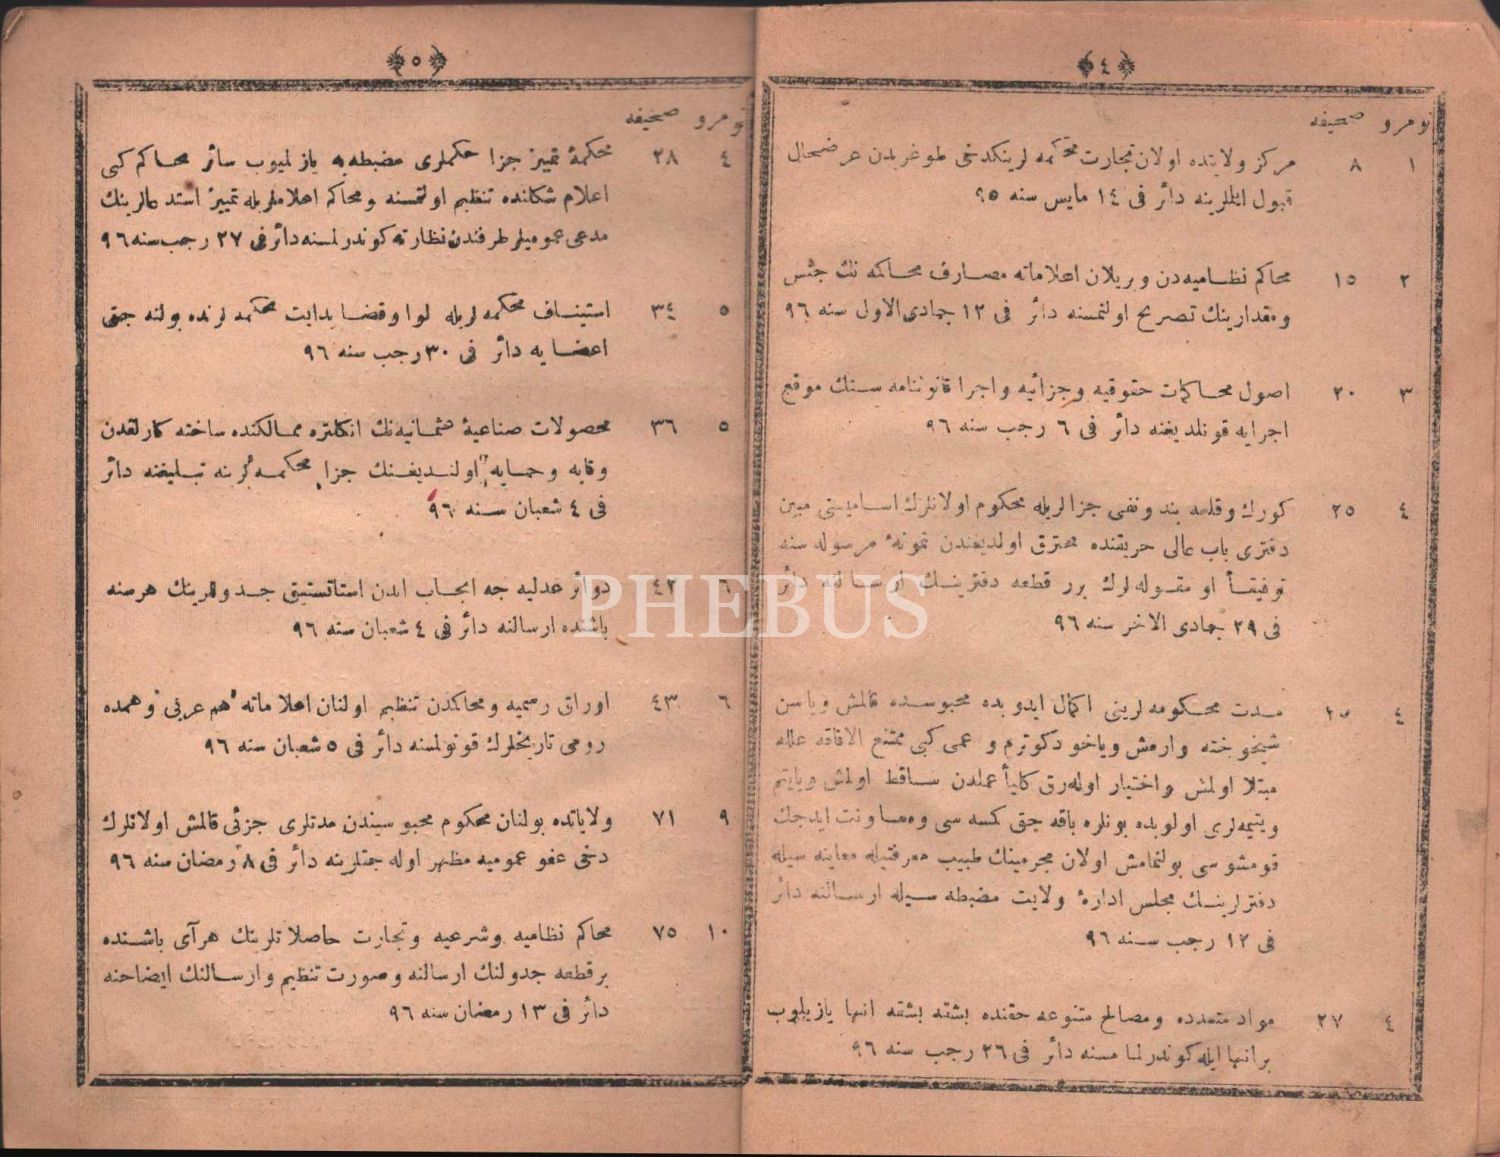 ٤
نومرو صحیفه
١ ٨ مركز ولایتده اولان تجارت محكمه لرینكدخی طوغریدن عرضحال
قبول ایتملرینه دائر فی ١٤ مایس سنه ٩٥
٢ ١٥ محاكم نظامیه‌دن ویریلان اعلاماته مصارف محاكمه نك جنس
ومقدارینك تصریح اولنمسنه دائر فی ١٢ جمادی الاول سنه ٩٦
٣ ٢٠ اصول محاكمات حقوقیه وجزائیه واجرا قانوننامه سنك موقع
اجرایه قونلدیغنه دائر فی ٦ رجب سنه ٩٦
٤ ٢٥ كورك وقلعه بند ونفی جزالریله محكوم اولانلرك اسامیسنی مبین
دفتری باب عالی حریقنده محترق اولدیغندن نمونهٔ مرسوله سنه
توفیقاً او مقوله‌لرك برر قطعه دفترینك ارسالنه دائر
فی ٢٩ جمادی الاخر سنه ٩٦
٤ ٢٥ مدت محكومه لرینی اكمال ایدوبده محبوسده قالمش ویاسن
شیخوخته وارمش ویاخود كوترم و عمی كبی ممتنع الافاقه علله
مبتلا اولمش واختیار اوله‌رق كلیاً عملدن ساقط اولمش ویایتم
ویتیمه‌لری اولوبده بونلره باقه جق كمسه سی ومعاونت ایدجك
قومشوسی بولنمامش اولان مجرمینك طبیب معرفتیله معاینه سیله
دفترلرینك مجلس ادارهٔ ولایت مضبطه سیله ارسالنه دائر
فی ١٢ رجب سنه ٩٦
٤ ٢٧ مواد متعدده ومصالح متنوعه حقنده بشقه بشقه انها یازیلوب
برانها ایله كوندرلمامسنه دائر فی ٢٦ رجب سنه ٩٦
٥
نومرو صحیفه
٤ ٢٨ محكمهٔ تمییز جزا حكملری مضبطه‌یه یازلمیوب سائر محاكم كبی
اعلام شكلنده تنظیم اولنمسنه ومحاكم اعلاملریله تمییز استدعالرینك
مدعی عمومیلر طرفندن نظارته كوندرلمسنه دائر فی ٢٧ رجب سنه ٩٦
٥ ٣٤ استیناف محكمه لریله لوا وقضا بدایت محكمه لرنده بولنه جق
اعضایه دائر فی ٣٠ رجب سنه ٩٦
٥ ٣٦ محصولات صناعیهٔ عثمانیه‌نك انكلتره ممالكنده ساخته كارلقدن
وقایه وحمایه اولندیغنك جزا محكمه لرینه تبلیغنه دائر
فی ٤ شعبان سنه ٩٦
٦ ٤٢ دوائر عدلیه جه ایجاب ایدن استاتستیق جدوللرینك هرسنه
باشنده ارسالنه دائر فی ٤ شعبان سنه ٩٦
٦ ٤٣ اوراق رسمیه ومحاكمدن تنظیم اولنان اعلاماته هم عربی وهمده
رومی تاریخلرك قونولمسنه دائر فی ٥ شعبان سنه ٩٦
٩ ٧١ ولایاتده بولنان محكوم محبوسیندن مدتلری جزئی قالمش اولانلرك
دخی عفو عمومیه مظهر اوله جقلرینه دائر فی ٨ رمضان سنه ٩٦
١٠ ٧٥ محاكم نظامیه وشرعیه وتجارت حاصلاتلرینك هرآی باشنده
برقطعه جدولنك ارسالنه وصورت تنظیم وارسالنك ایضاحنه
دائر فی ١٣ رمضان سنه ٩٦
PHEBUS